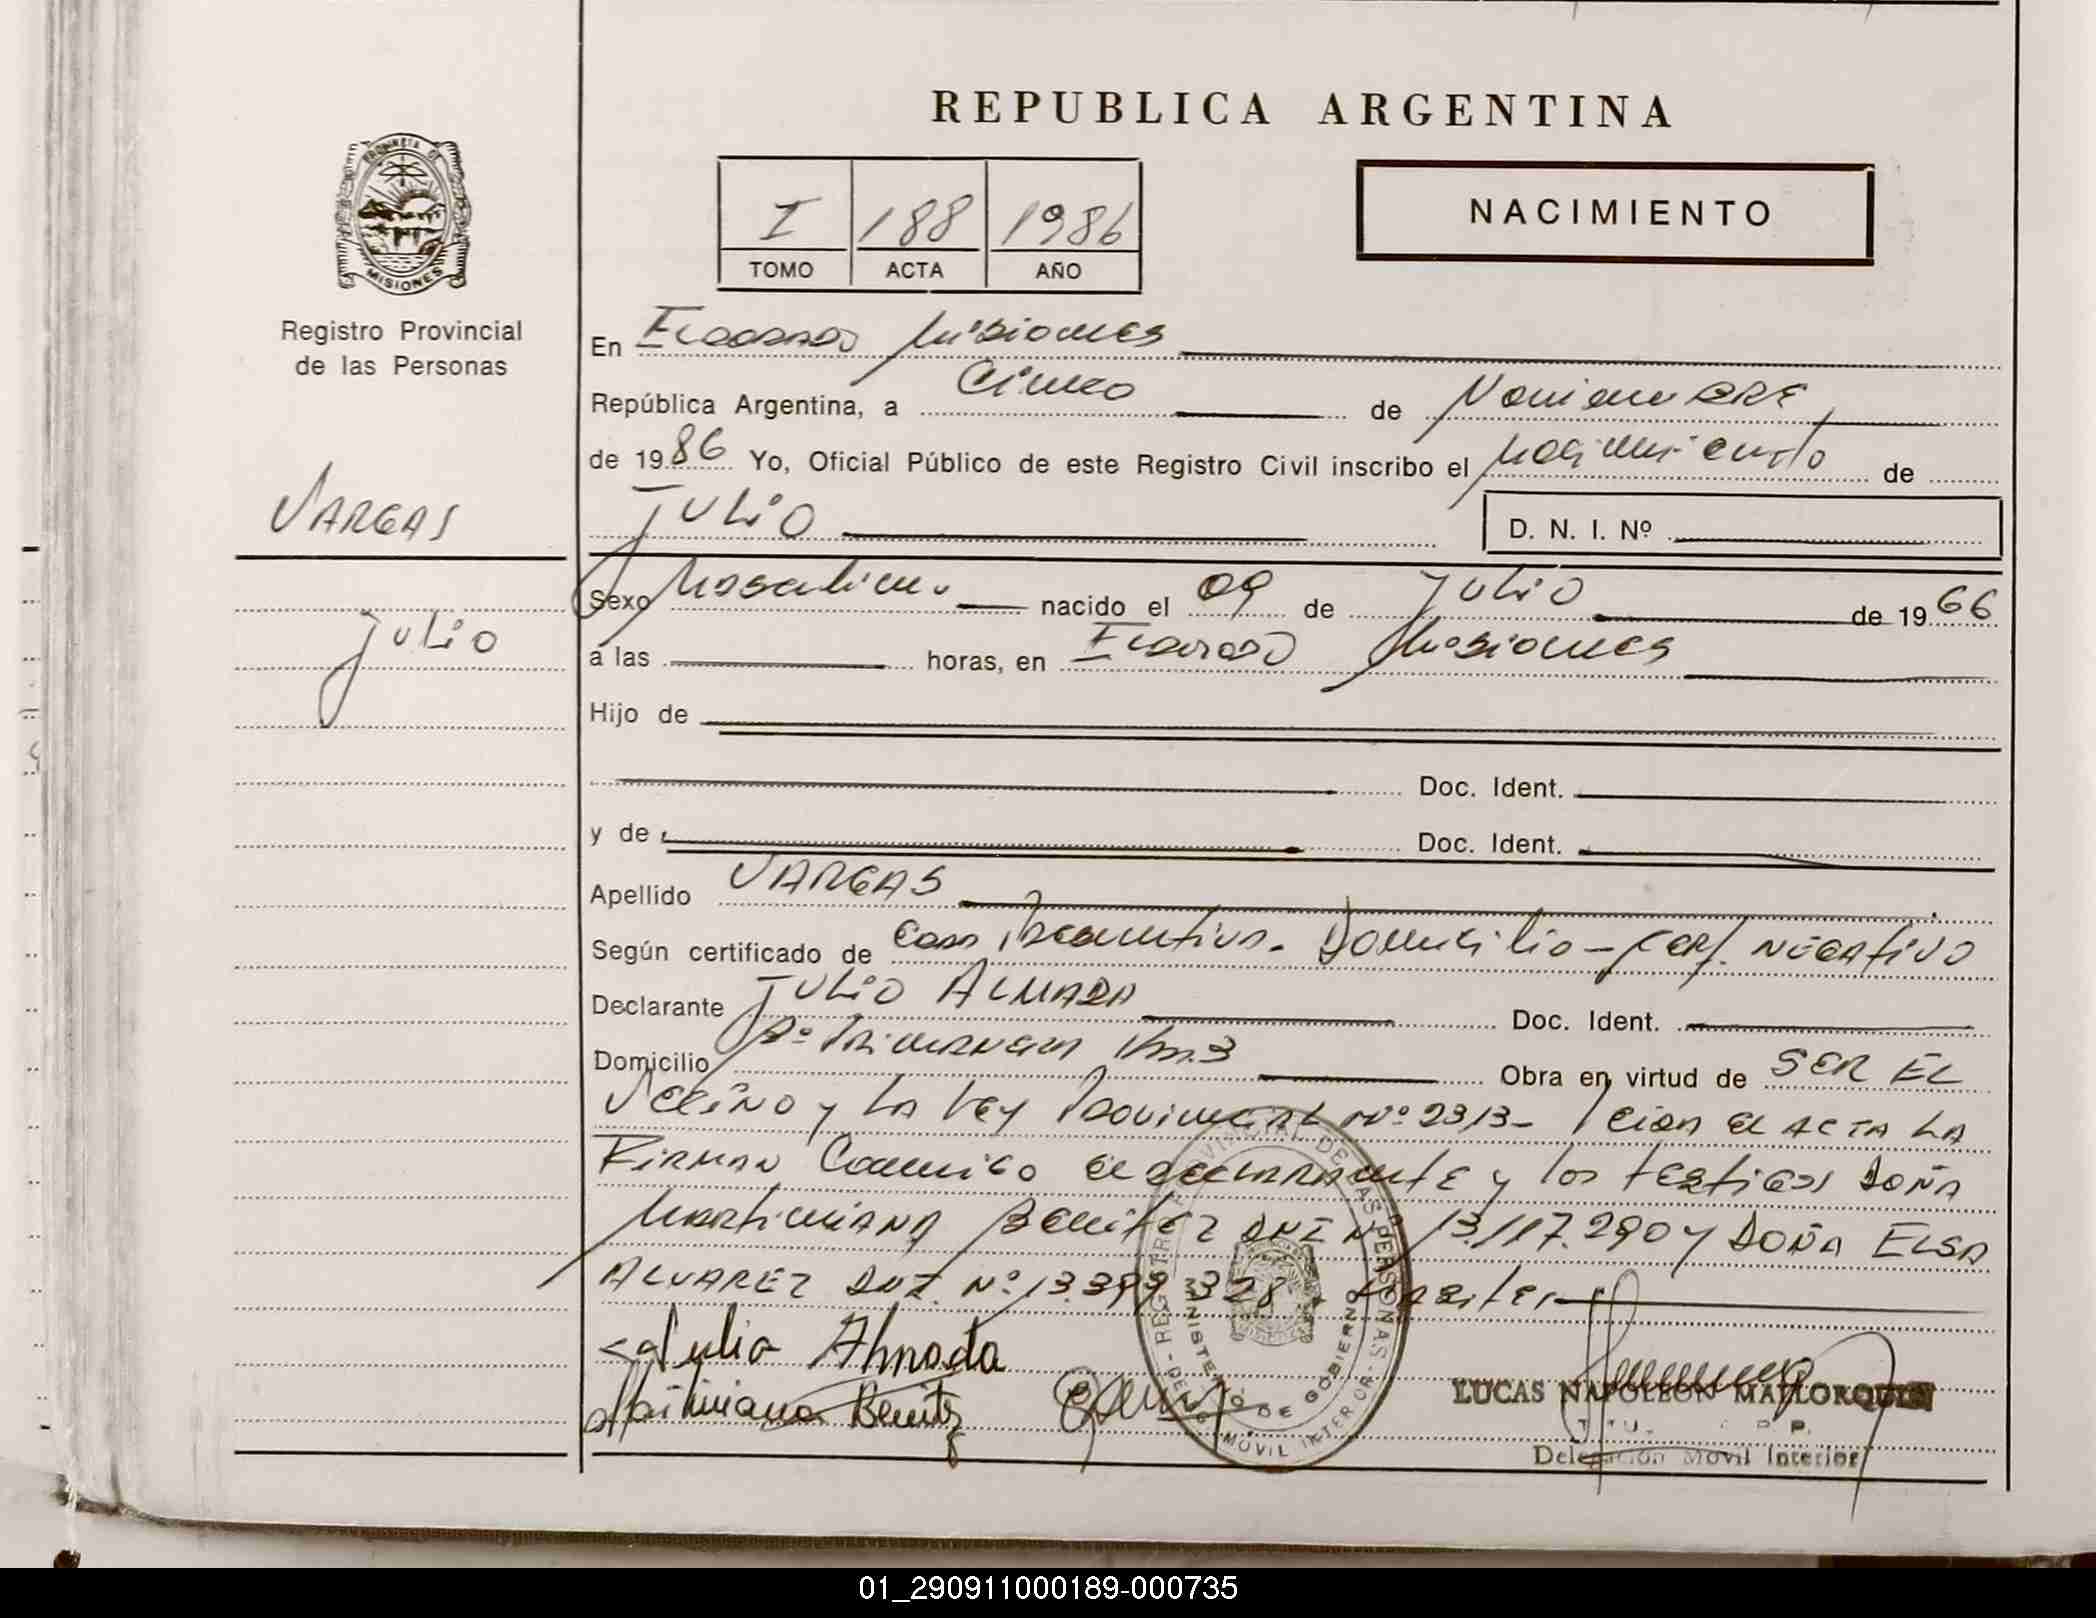 REPUBLICA ARGENTINA
PROVINCIA DE
MISIONES
I 188 1986
TOMO ACTA AÑO
NACIMIENTO
Registro Provincial
de las Personas
VARGAS
Julio
En Eldorado Misiones
República Argentina, a Cinco de Noviembre
de 1986 Yo, Oficial Público de este Registro Civil inscribo el nacimiento de
Julio D. N. I. Nº
Sexo Masculino nacido el 09 de Julio de 1966
a las horas, en Eldorado Misiones
Hijo de
Doc. Ident.
y de Doc. Ident.
Apellido VARGAS
Según certificado de Domicilio - Cert. NEGATIVO
Declarante Julio ALMADA Doc. Ident.
Domicilio Km. 3 Obra en virtud de SER EL
VECINO y LA Ley PROVINCIAL Nº 2313- Leida el ACTA LA
FIRMAN Conmigo el declarante y los testigos DOÑA
Martiniana Benitez DNI Nº 13.117.290 y DOÑA ELSA
ALVAREZ DNI. Nº 13.399.328.
Julio Almada
Martiniana Benitez
REGISTRO PROVINCIAL DE LAS PERSONAS
MINISTERIO DE GOBIERNO
MOVIL INTERIOR
LUCAS NAPOLEON MALLORQUIN
Delegación Movil Interior
01_290911000189-000735